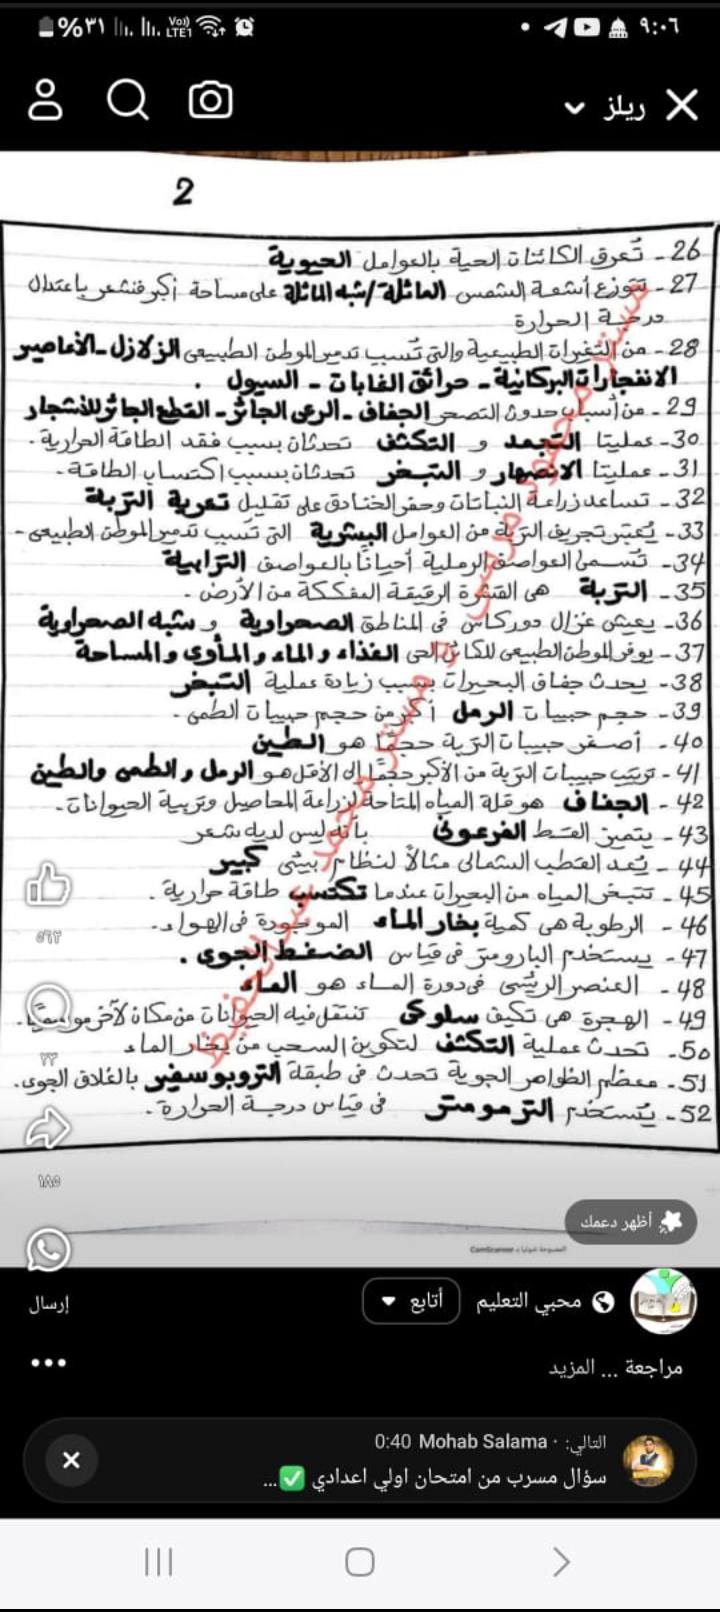 ٩:٠٦
%٣١
Vo)) LTE1
ريلز
2
26- تُعرف الكائنات الحية بالعوامل الحيوية
27- تتوزع أشعة الشمس المائلة/شبه المائلة على مساحة أكبر فنشعر باعتدال
درجة الحرارة
28- من التغيرات الطبيعية والتى تسبب تدمير الموطن الطبيعى الزلازل - الأعاصير
الانفجارات البركانية - حرائق الغابات - السيول .
29- من أسباب حدوث التصحر الجفاف - الرعى الجائر - القطع الجائر للأشجار
30- عمليتا التجمد و التكثف تحدثان بسبب فقد الطاقة الحرارية .
31- عمليتا الانصهار و التبخر تحدثان بسبب اكتساب الطاقة .
32- تساعد زراعة النباتات وحفر الخنادق على تقليل تعرية التربة
33- يُعتبر تجريف التربة من العوامل البشرية التى تسبب تدمير الموطن الطبيعى -
34- تسمى العواصف الرملية أحياناً بالعواصف الترابية
35- التربة هى القشرة الرقيقة المفككة من الأرض .
36- يعيش غزال دوركاس فى المناطق الصحراوية و شبه الصحراوية
37- يوفر الموطن الطبيعى للكائن الحى الغذاء و الماء و المأوى و المساحة
38- يحدث جفاف البحيرات بسبب زيادة عملية التبخر
39- حجم حبيبات الرمل أكبر من حجم حبيبات الطمى .
40- أصغر حبيبات التربة حجمًا هو الطين
41- ترتيب حبيبات التربة من الأكبر حجمًا إلى الأقل هو الرمل و الطمى والطين
42- الجفاف هو قلة المياه المتاحة لزراعة المحاصيل وتربية الحيوانات .
43- يتميز القط الفرعونى بأنه ليس لديه شعر
44- يُعد القطب الشمالى مثالاً لنظام بيئى كبير
45- تتبخر المياه من البحيرات عندما تكتسب طاقة حرارية .
46- الرطوبة هى كمية بخار الماء الموجودة فى الهواء .
47- يستخدم البارومتر فى قياس الضغط الجوى .
48- العنصر الرئيسى فى دورة الماء هو الماء
49- الهجرة هى تكيف سلوكى تنتقل فيه الحيوانات من مكان لآخر موسميًا .
50- تحدث عملية التكثف لتكوين السحب من بخار الماء
51- معظم الظواهر الجوية تحدث فى طبقة التروبوسفير بالغلاف الجوى .
52- يُستخدم الترمومتر فى قياس درجة الحرارة .
٥٦٣
٢٣
١٨٥
أظهر دعمك
CamScanner
محبي التعليم
أتابع
إرسال
مراجعة ... المزيد
التالي: · Mohab Salama 0:40
سؤال مسرب من امتحان اولي اعدادي ✅...